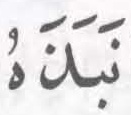 نَبَذَهُ